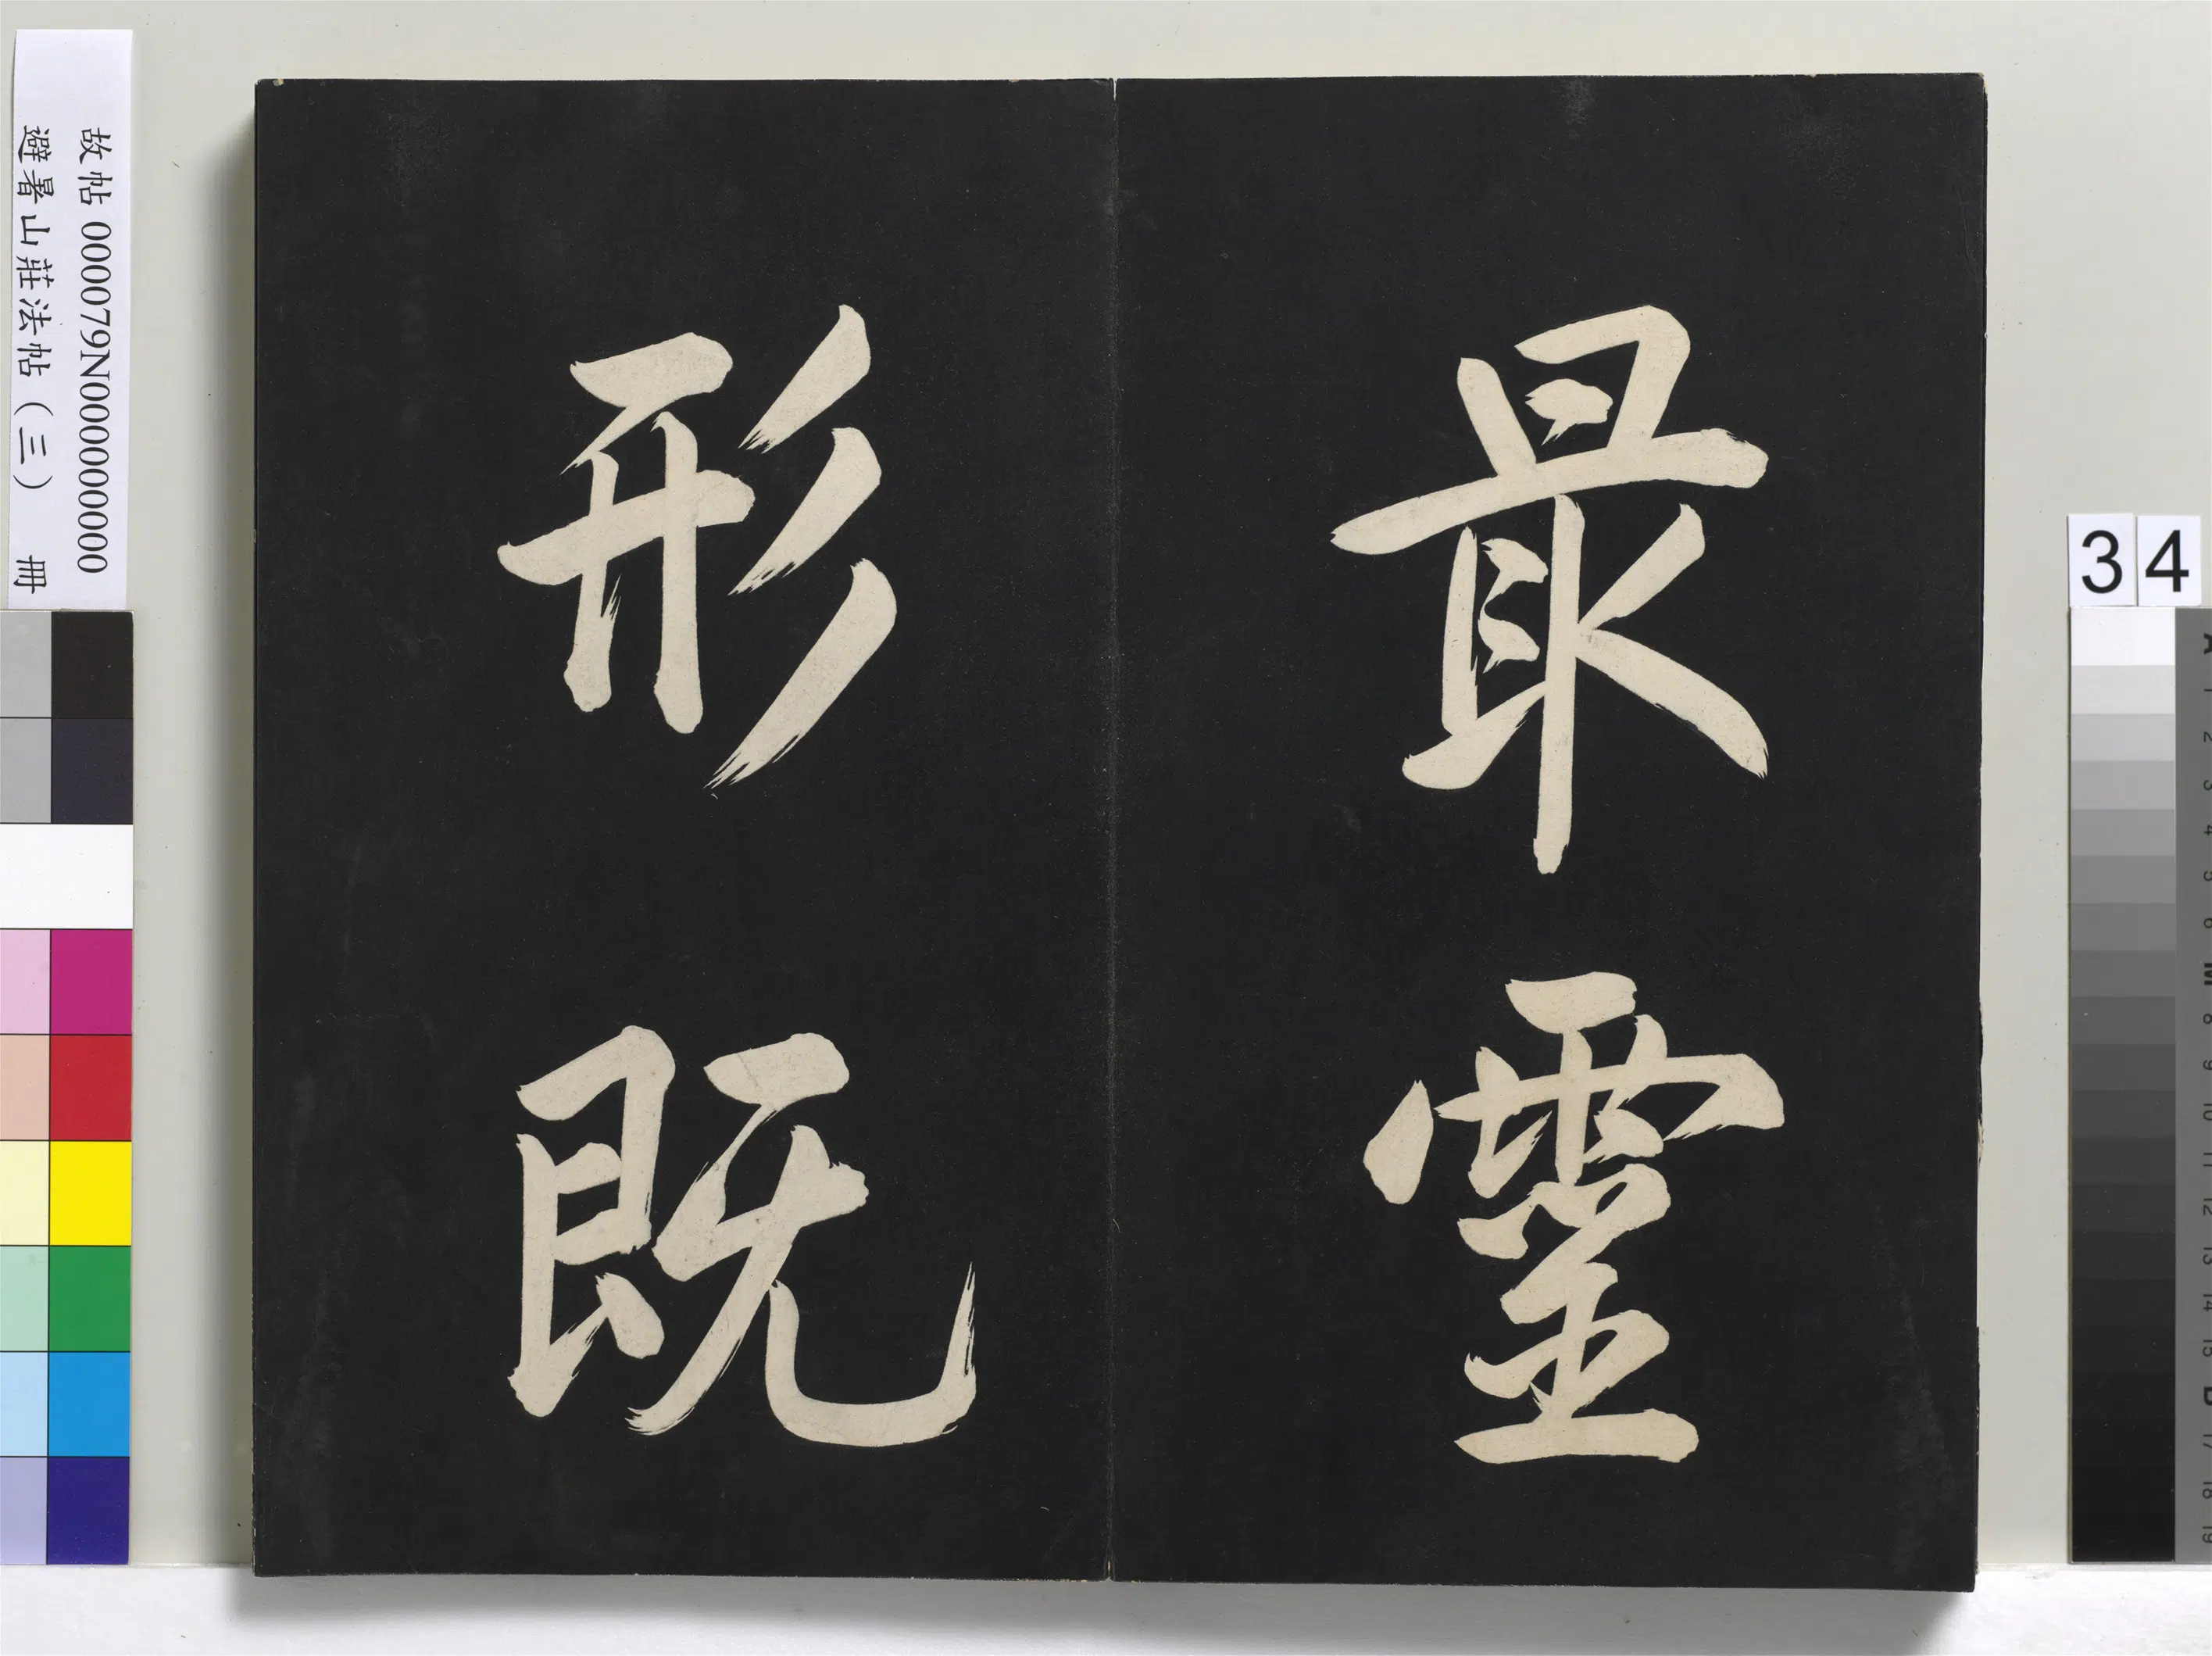 最靈
形既
故帖 000079N000000000
避暑山莊法帖(三) 冊
34
A
1
2
3
4
5
6
M
8
9
10
11
12
13
14
15
B
17
18
19